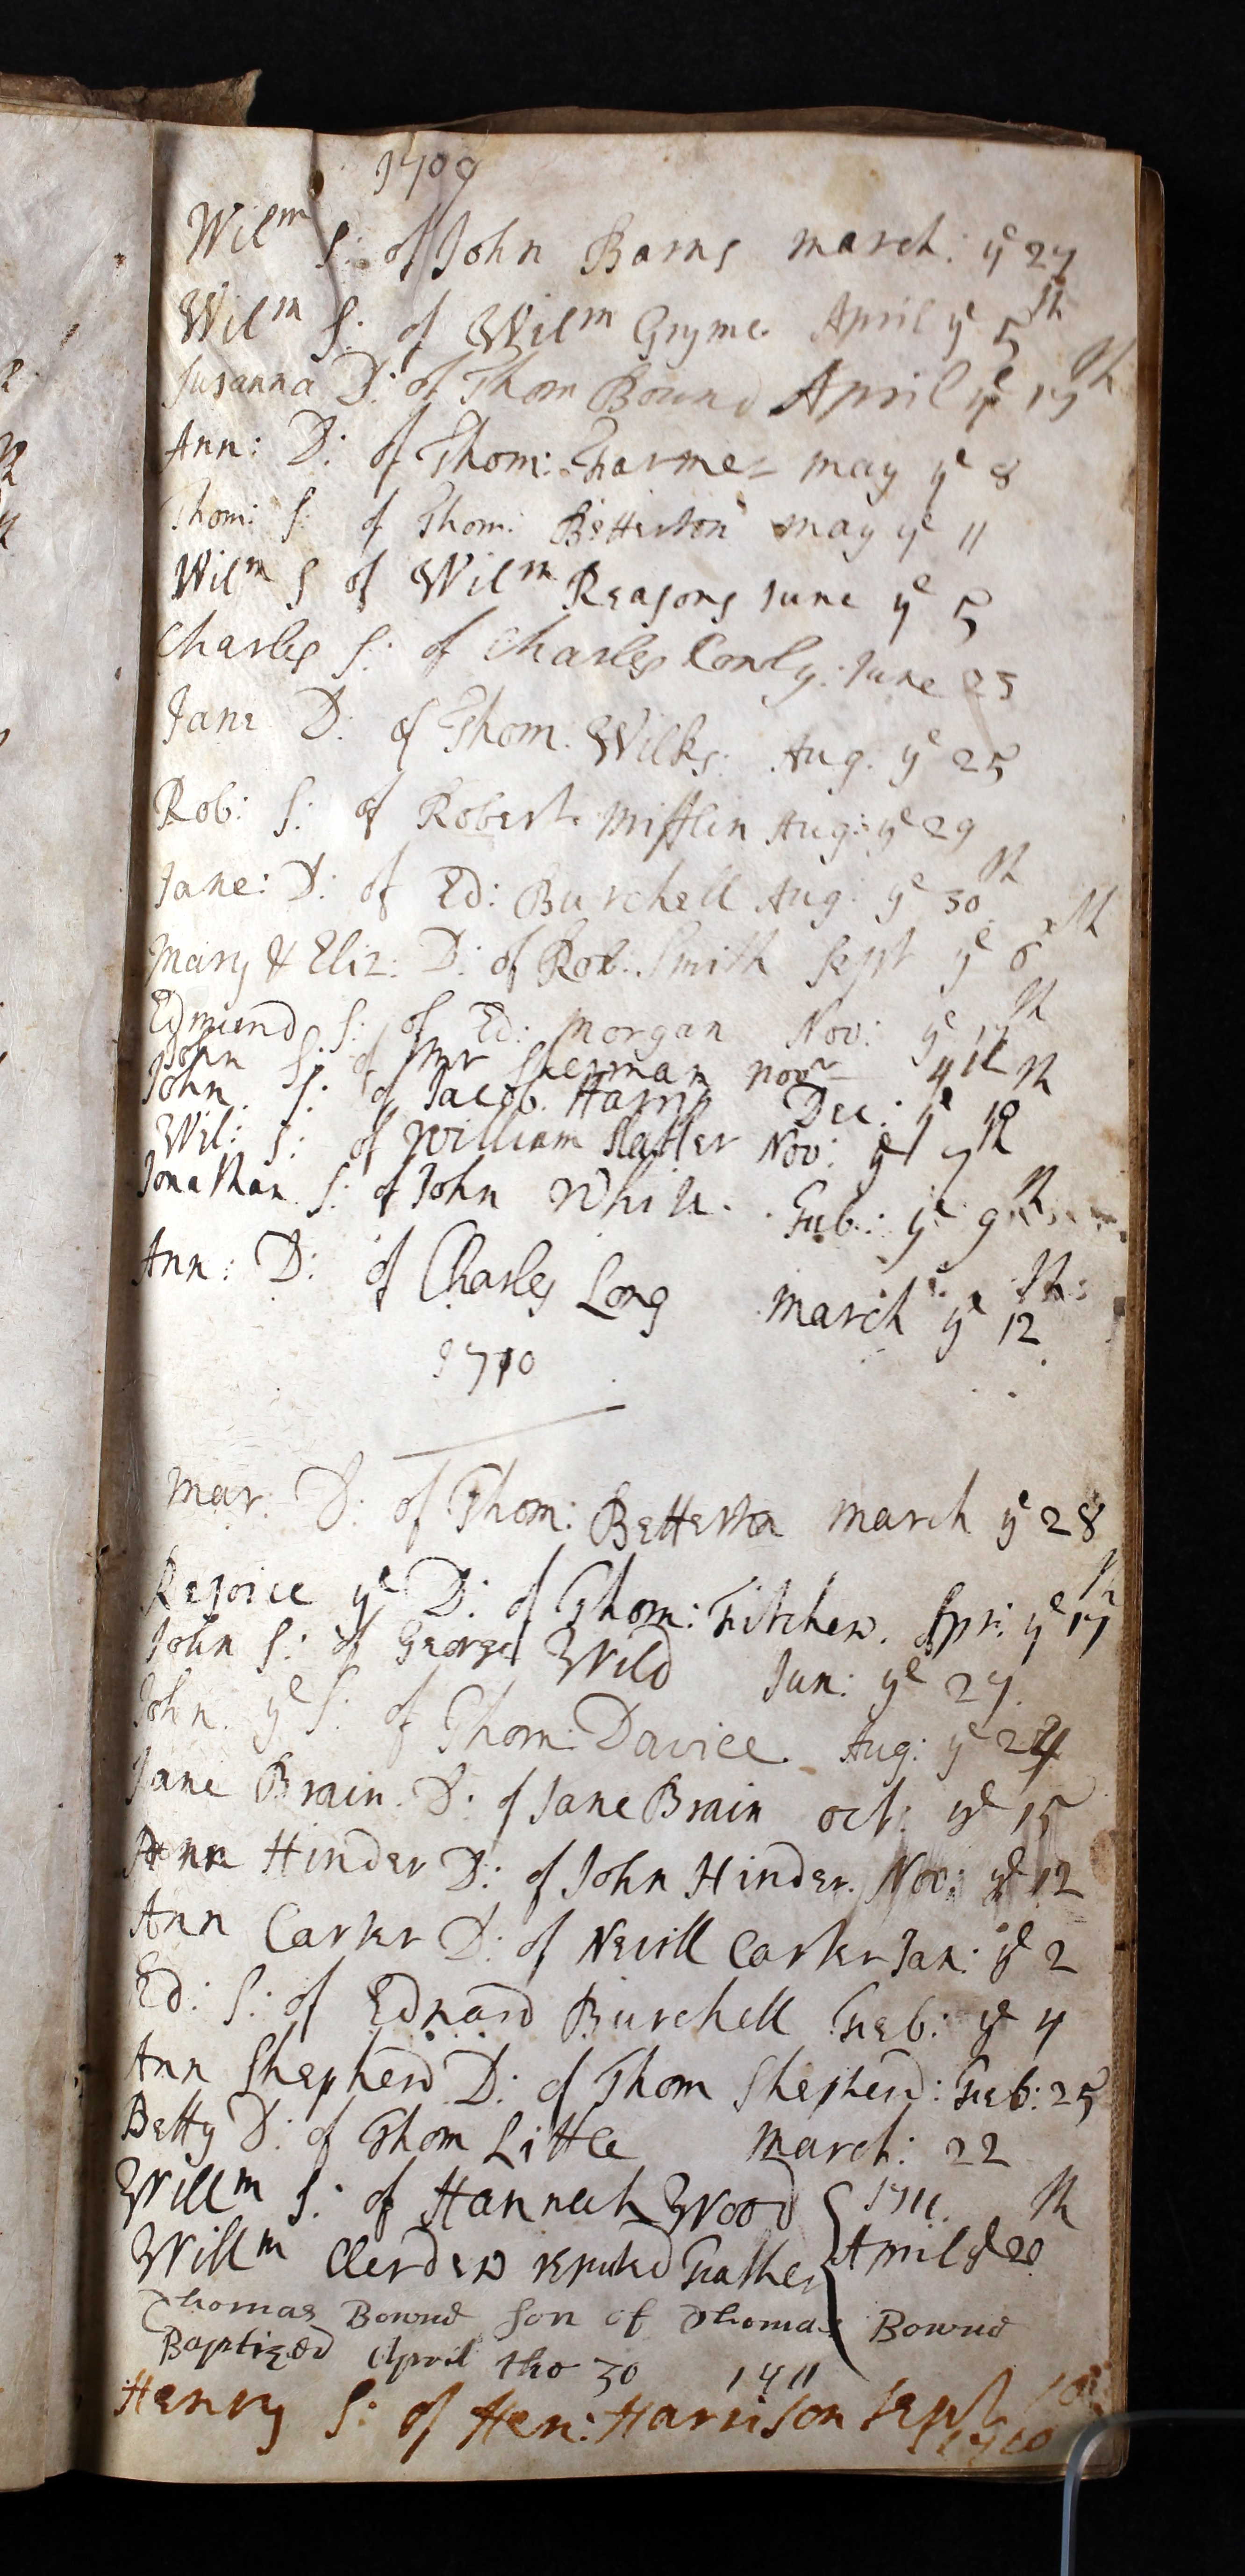 1709
Wilm S: of John Barns march: ye 27
Wilm S: of Wilm Gryme April ye 5th
Susanna D: of Thom Bound April ye 17th
Ann: D: of Thom: Farmer may ye 8
Thom: S: of Thom: Betterton may ye 11
Wilm S of Wilm Reasons June ye 5
Charles S: of Charles Conly: June 25
Jane D: of Thom. Wilks: Aug. ye 25
Rob: S: of Robert Mifflin Aug: ye 29
Jane: D: of Ed: Burchell Aug: ye 30th
Mary & Eliz: D: of Rob: Smith Sept ye 6th
Edmund S: of Ed: morgan Nov: ye 17th
John S: of Mr Sherman Novr
John S: of Jacob Harris Dec: ye 18th
Wil: S: of William Slatter Nov: ye 7th
Jonathan S: of John White. Feb: ye 9th
Ann: D: of Charles Long march ye 12th
1710
Mar: D: of Thom: Betterton march ye 28
Rejoice ye D: of Thom: Fitchew. Apr: ye 17th
John S: of George Wild Jun: ye 27
John ye S: of Thom: Davice. Aug: ye 24
Jane Brain D: of Jane Brain oct: ye 15
Ann Hinder D: of John Hinder. Nov: ye 12
Ann Carter D: of Nevill Carter Jan: ye 2
Ed: S: of Edward Burchell Feb: ye 4
Ann Shepherd D: of Thom Shepherd: Feb: 25
Betty D: of Thom Little march: 22
Willm S: of Hannah Wood 1711.
Willm Clerdew reputed Father April ye 20th
Thomas Bound Son of Thomas Bound
Baptized April the 30 1711
Henry S: of Hen: Harrison Sept
1710